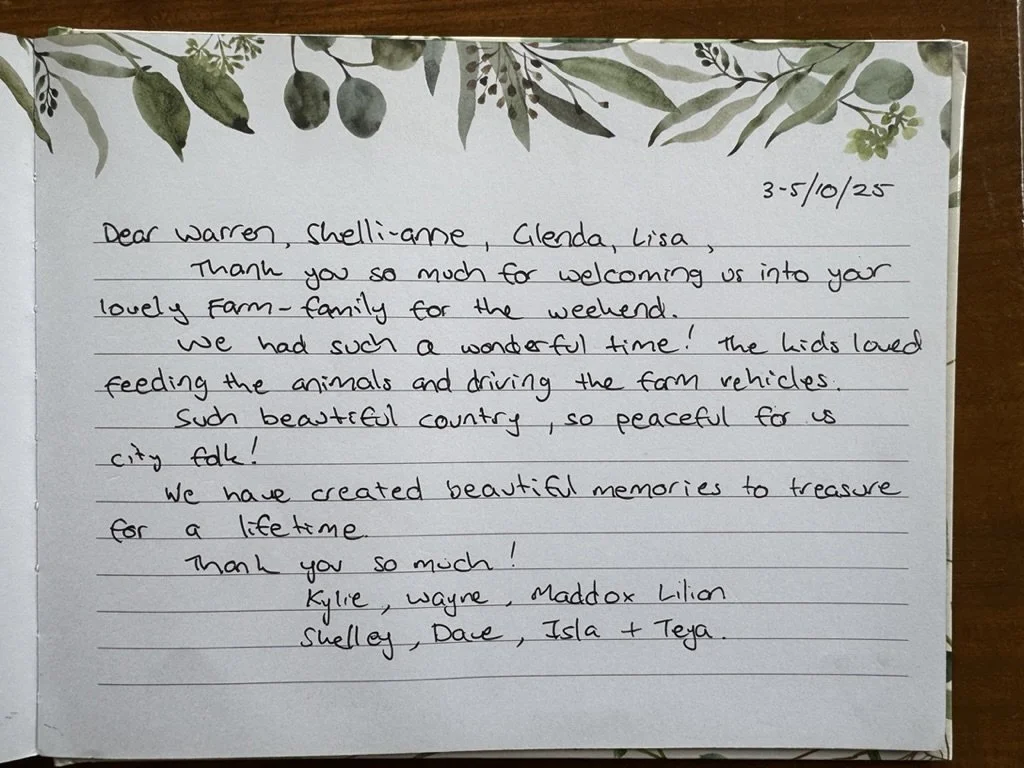 3-5/10/25
Dear Warren, Shelli-anne, Glenda, Lisa,
Thank you so much for welcoming us into your
lovely Farm-family for the weekend.
We had such a wonderful time! The kids loved
feeding the animals and driving the farm vehicles.
Such beautiful country, so peaceful for us
city folk!
We have created beautiful memories to treasure
for a lifetime.
Thank you so much!
Kylie, Wayne, Maddox Lilian
Shelley, Dave, Isla + Teya.